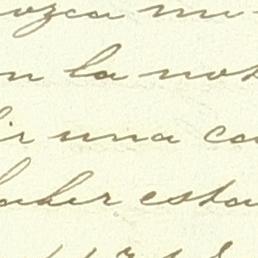 ozca mi
n la nos
ir una co
aber esta